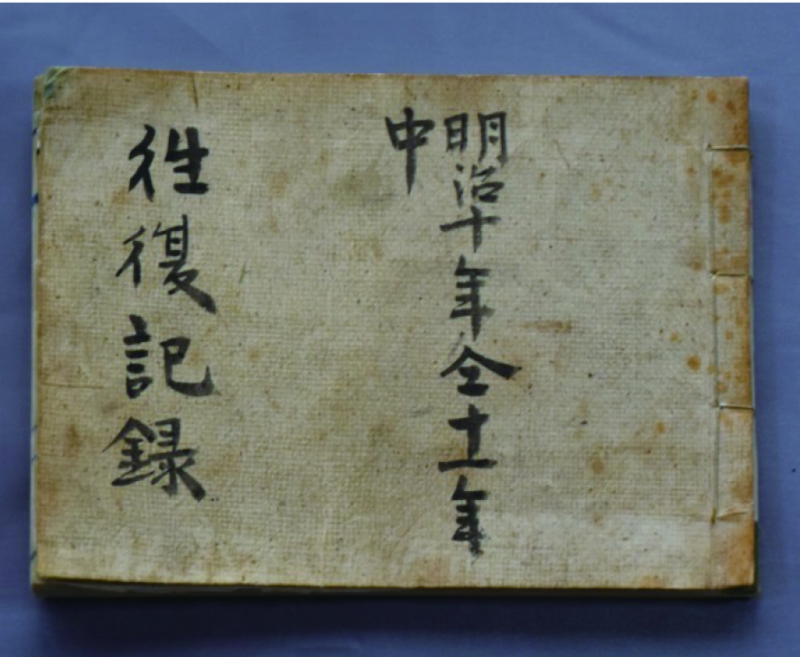 明治十年仝十一年
中
往復記録